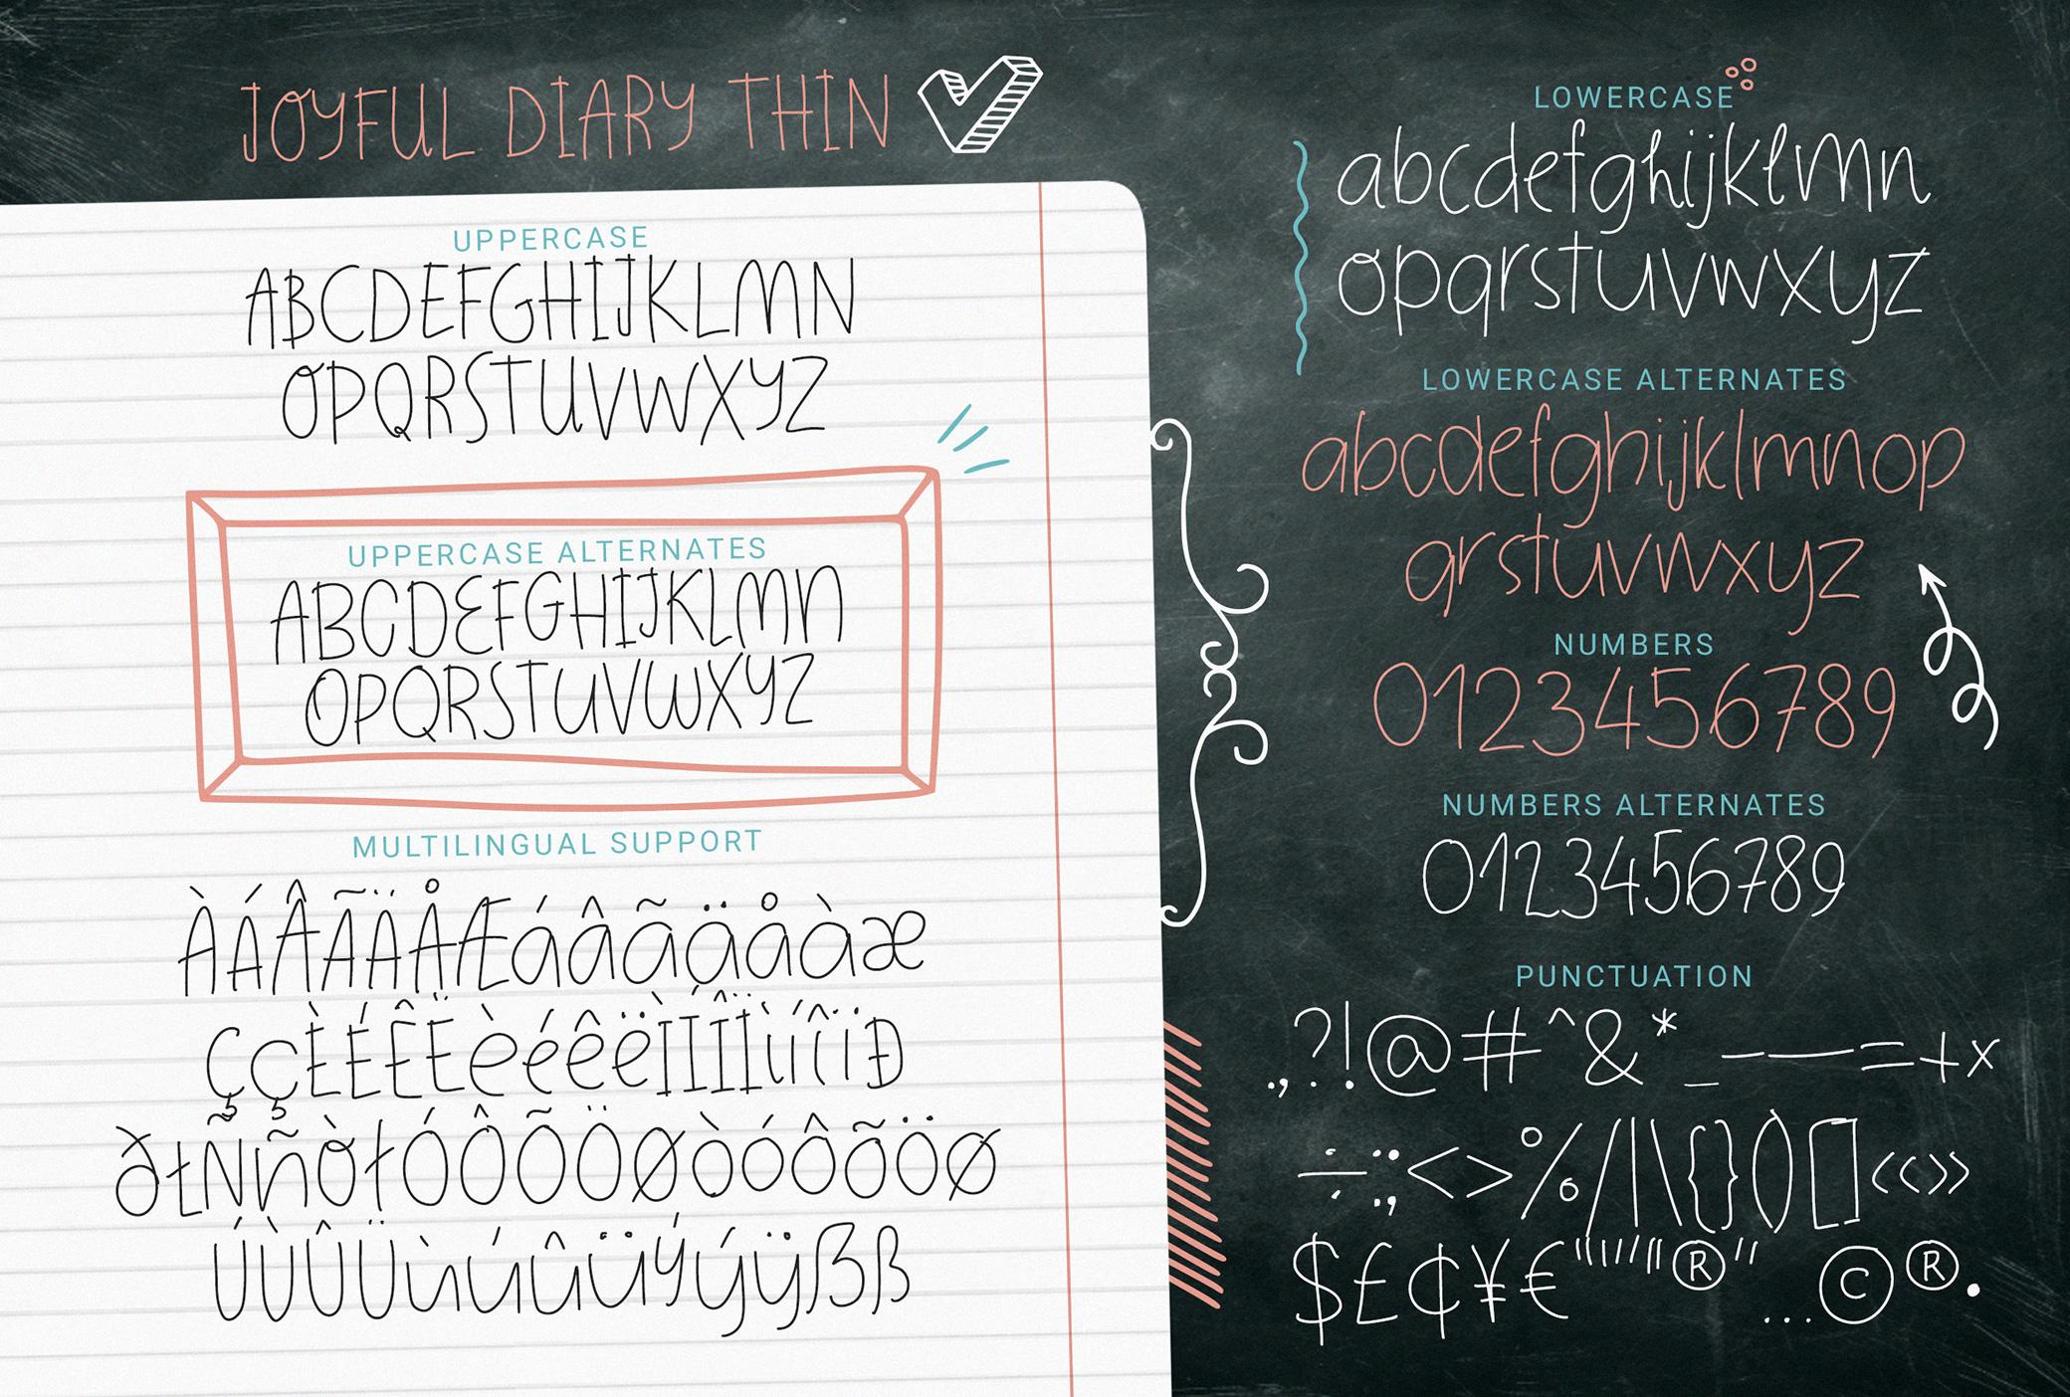 JOYFUL DIARY THIN
UPPERCASE
ABCDEFGHIJKLMN
OPQRSTUVWXYZ
UPPERCASE ALTERNATES
ABCDEFGHIJKLMN
OPQRSTUVWXYZ
MULTILINGUAL SUPPORT
ÀÁÂÃÄÅÆáâãäåàæ
ÇçÈÉÊËèéêëÌÍÎÏìíîïÐ
ðłÑñÒłÓÔÕÖØòóôõöø
ÚÙÛÜùúûüÝýÿẞß
LOWERCASE
abcdefghijklmn
opqrstuvwxyz
LOWERCASE ALTERNATES
abcdefghijklmnop
qrstuvwxyz
NUMBERS
0123456789
NUMBERS ALTERNATES
0123456789
PUNCTUATION
.,?!@#^&*_–—=+x
÷:;<>%/|\{}()[]‹«»›
$£¢¥€"''"®"...©®.